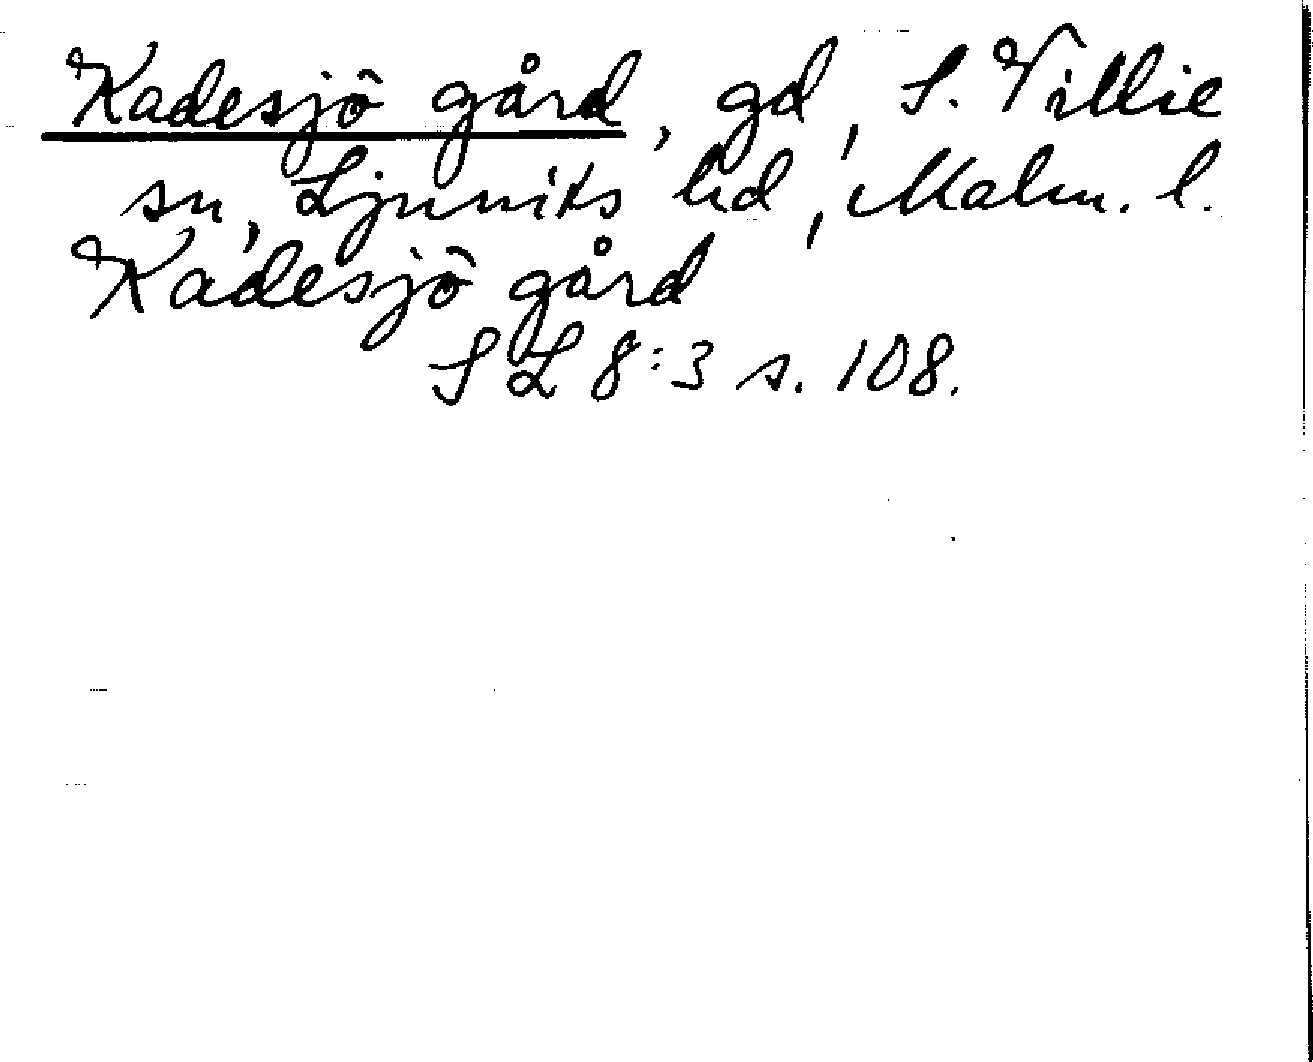 Kadesjö gård, gd, S. Villie
sn, Ljunits hd, Malm. l.
Kadesjö gård
SL 8:3 s. 108.